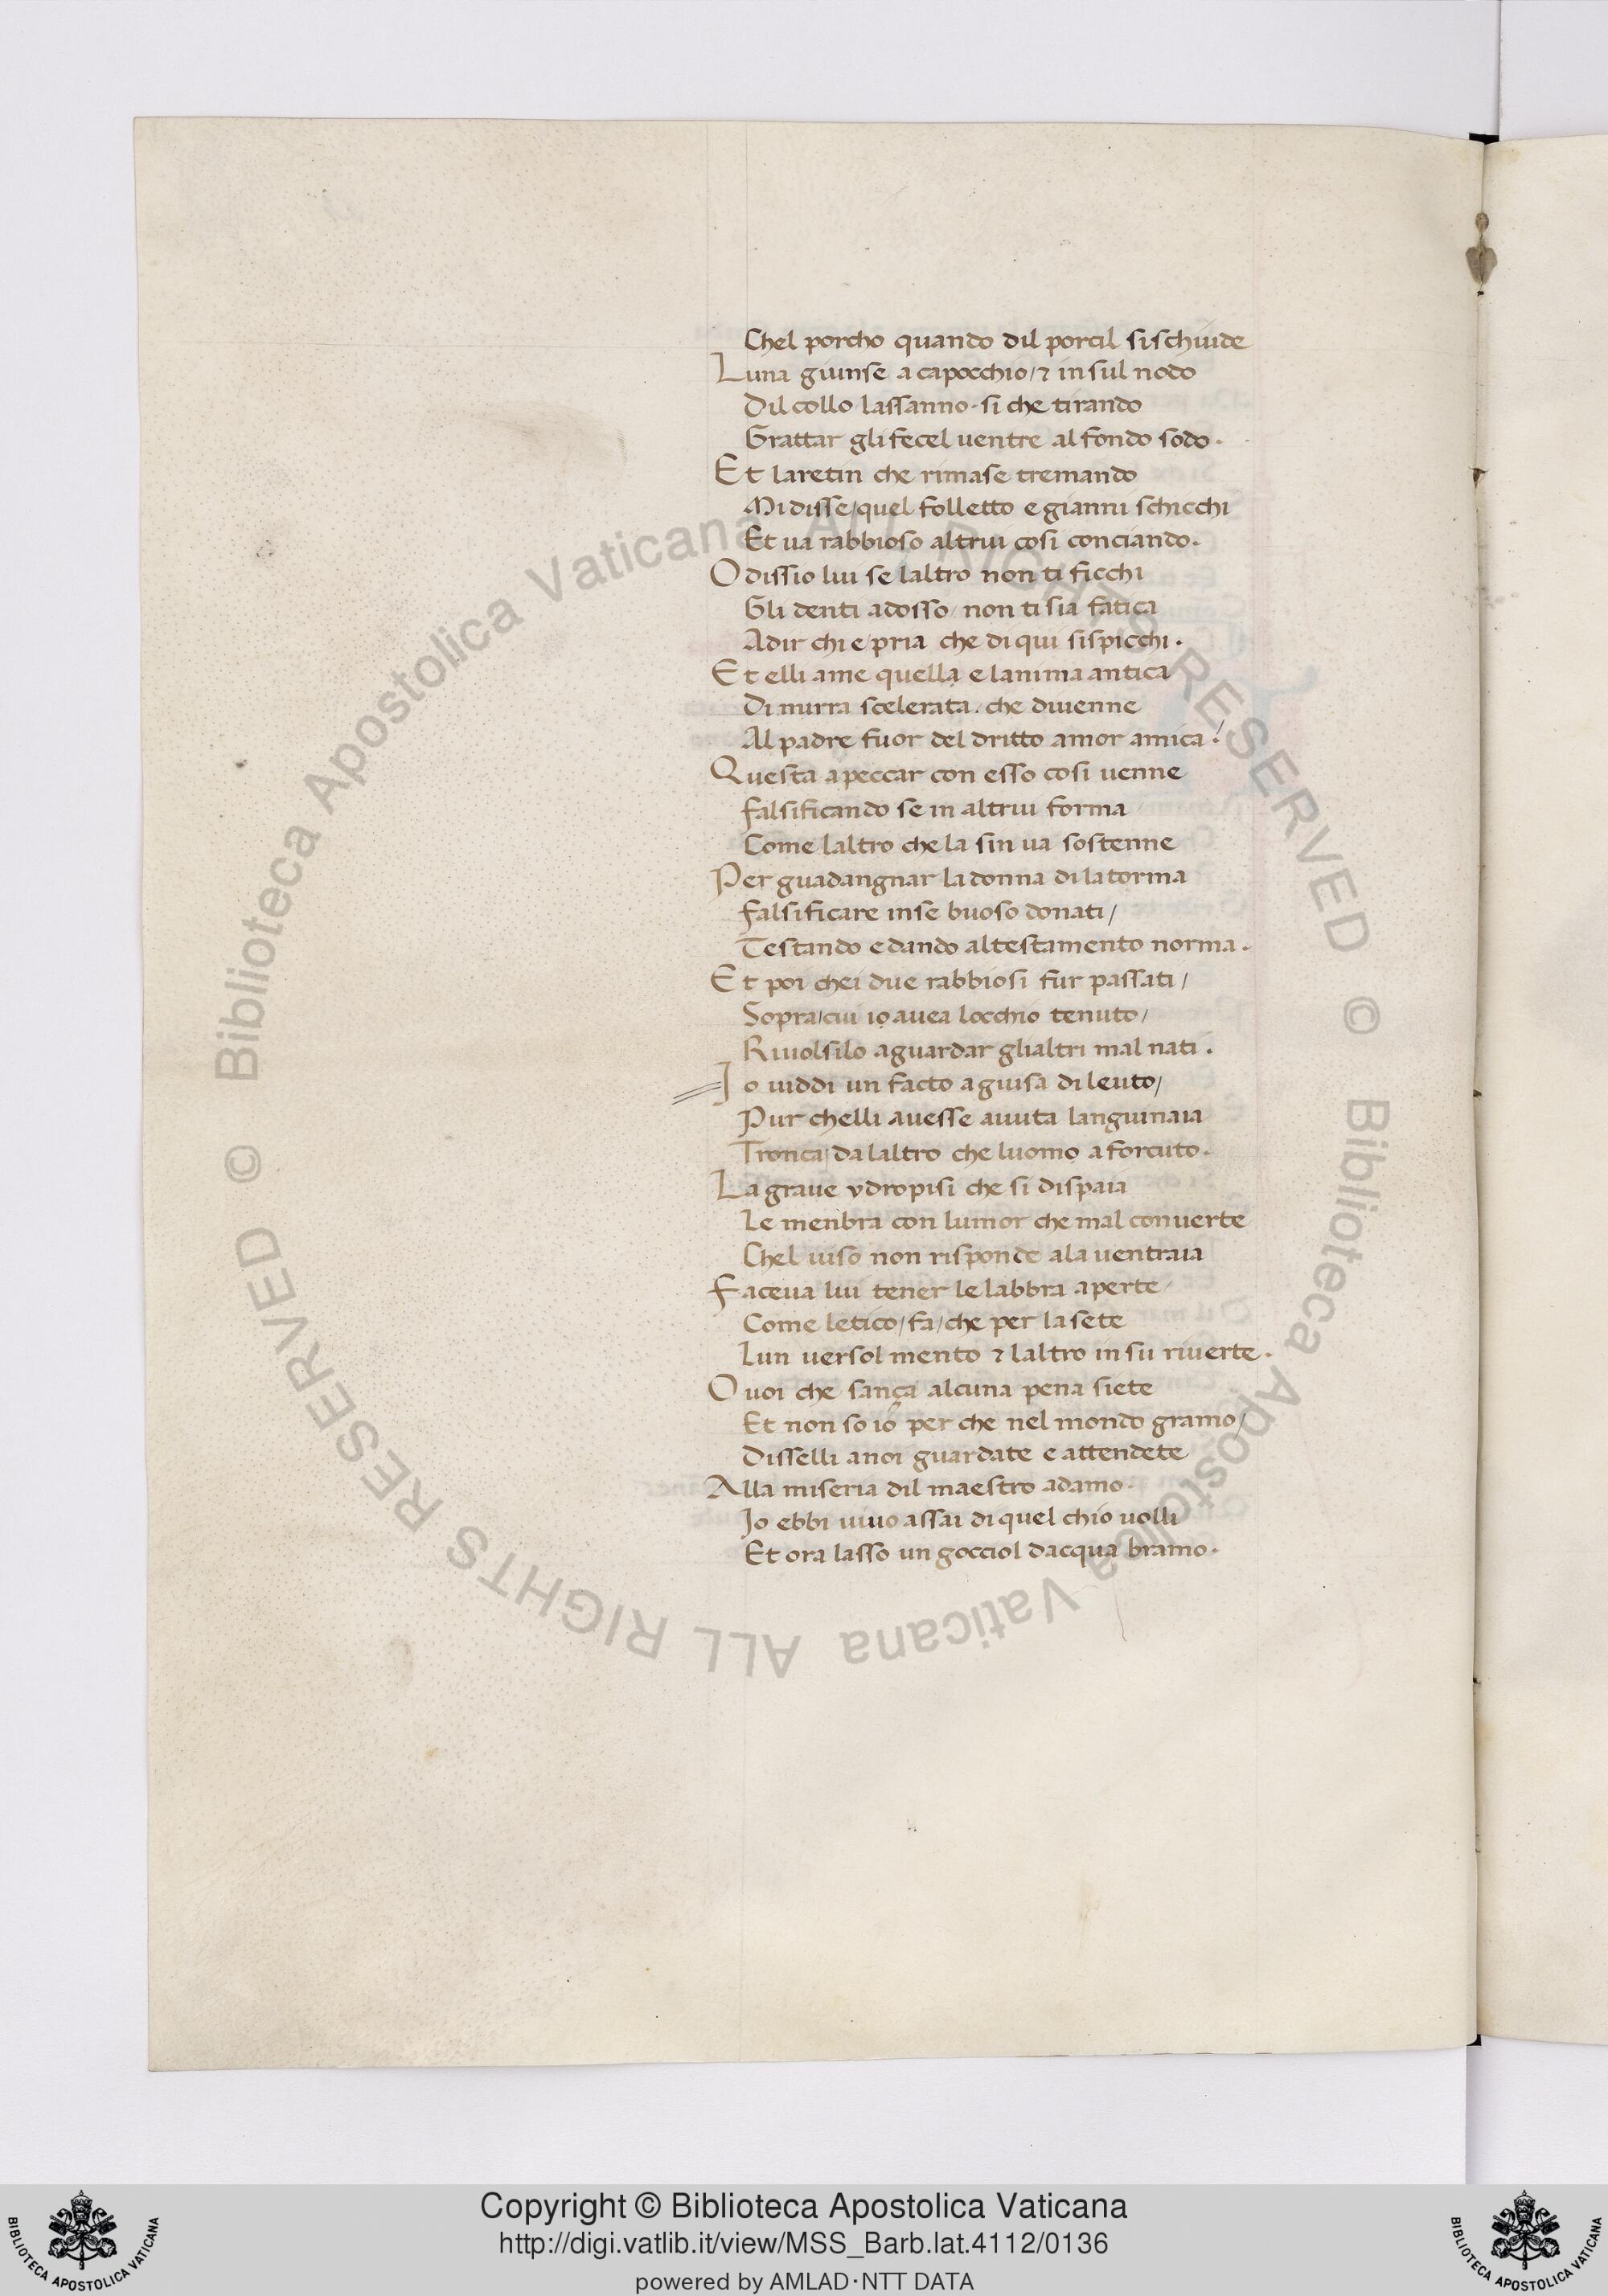 Chel porcho quando dil porcil si schiude
Luna giunse a capocchio/ ⁊ in sul nodo
Dil collo lassanno · si che tirando
Grattar gli fecel uentre al fondo sodo ·
Et laretin che rimase tremando
Mi disse/ quel folletto e gianni schicchi
Et ua rabbioso altrui cosi conciando ·
O dissio lui se laltro non ti ficchi
Gli denti adosso/ non ti sia fatica
A dir chi e/ pria che di qui sispicchi ·
Et elli ame quella e lanima antica
Di mirra scelerata · che diuenne
Al padre fuor del dritto amor amica ·/
Questa a peccar con esso cosi uenne
falsificando se in altrui forma
Come laltro che la sin ua sostenne
Per guadangnar la donna di la torma
falsificare in se buoso donati/
Testando e dando al testamento norma ·
Et poi chei due rabbiosi fur passati/
Sopra/ cui io auea locchio tenuto/
Riuolsilo a guardar glialtri mal nati ·
Io uiddi un facto a guisa di leuto/
Pur chelli auesse auuta languinaia
Tronca/ da laltro che luomo a forcuto ·
La graue ydropisi che si dispaia
Le menbra con lumor che mal conuerte
Chel uiso non risponde ala uentraia
Faceua lui tener le labbra aperte/
Come letico/ fa/ che per la sete
Lun uersol mento ⁊ laltro in su riuerte ·
O uoi che sança alcuna pena siete
Et non so io per che nel mondo gramo/
Disselli anoi guardate e attendete
Alla miseria dil maestro adamo ·
Io ebbi uiuo assai di quel chio uolli
Et ora lasso un gocciol dacqua bramo ·
© Biblioteca Apostolica Vaticana ALL RIGHTS RESERVED © Biblioteca Apostolica Vaticana ALL RIGHTS RESERVED
Copyright © Biblioteca Apostolica Vaticana
http://digi.vatlib.it/view/MSS_Barb.lat.4112/0136
powered by AMLAD·NTT DATA
BIBLIOTECA APOSTOLICA VATICANA
BIBLIOTECA APOSTOLICA VATICANA